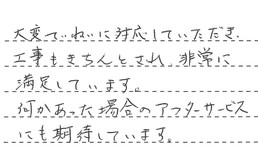 大変ていねいに対応していただき、
工事もきちんとされ、非常に
満足しています。
何かあった場合のアフターサービス
にも期待しています。